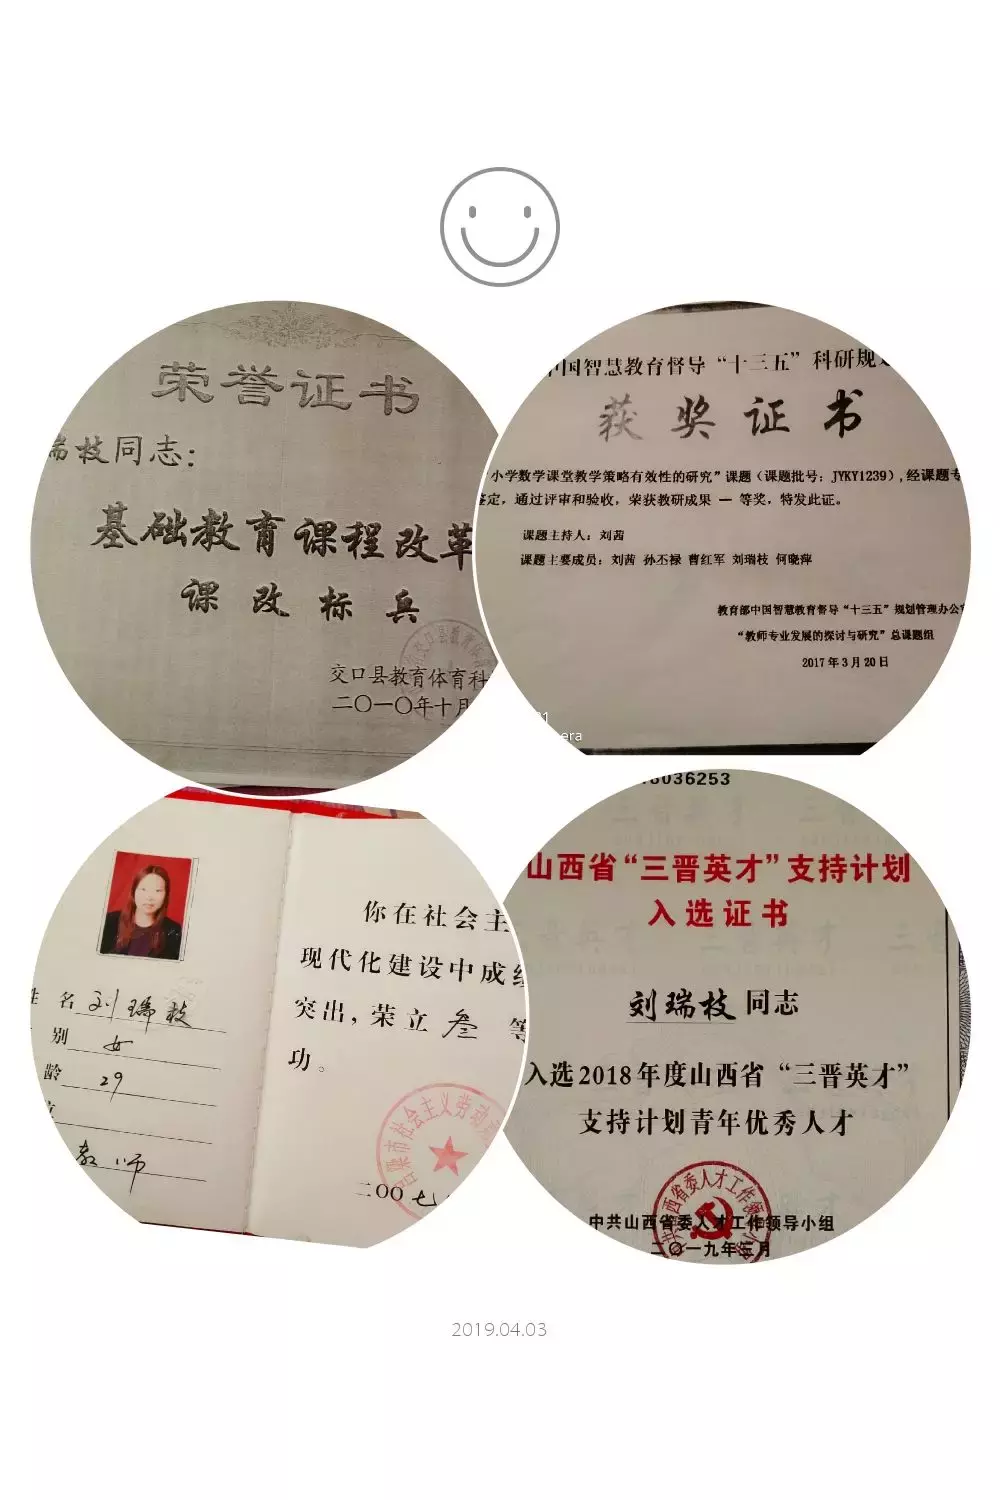 荣誉证书
瑞枝同志：
基础教育课程改革
课改标兵
交口县教育体育科
二〇一〇年十月
中国智慧教育督导“十三五”科研规划
获奖证书
小学数学课堂教学策略有效性的研究”课题（课题批号：JYKY1239），经课题专
鉴定，通过评审和验收，荣获教研成果 一 等奖，特发此证。
课题主持人：刘茜
课题主要成员：刘茜 孙丕禄 曹红军 刘瑞枝 何晓萍
教育部中国智慧教育督导“十三五”规划管理办公室
“教师专业发展的探讨与研究”总课题组
2017年3月20日
姓 名 刘瑞枝
别 女
龄 29
教师
你在社会主
现代化建设中成绩
突出，荣立 叁 等
功。
吕梁市社会主义劳动
二〇〇七
8036253
山西省“三晋英才”支持计划
入选证书
刘瑞枝 同志
入选2018年度山西省“三晋英才”
支持计划青年优秀人才
中共山西省委人才工作领导小组
二〇一九年三月
2019.04.03